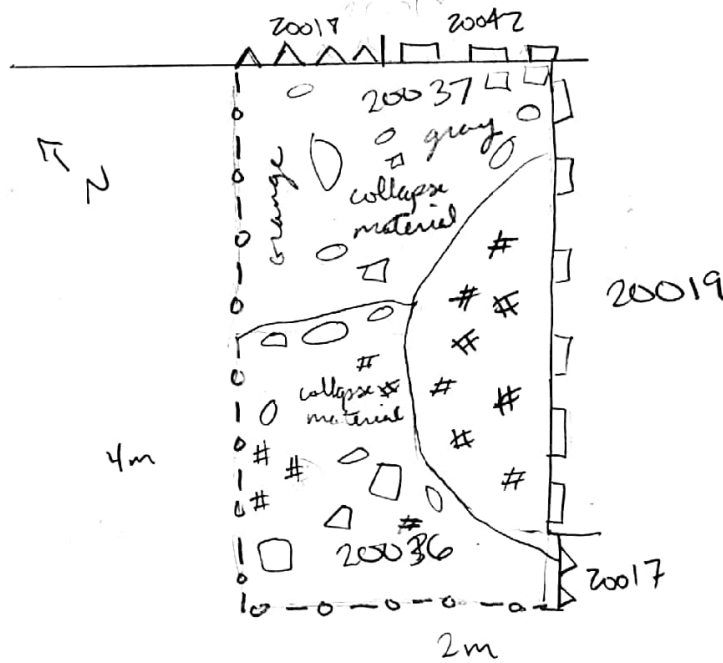 20017
20042
20037
gray
orange
collapse
material
N
20019
collapse
material
4m
20036
20017
2m